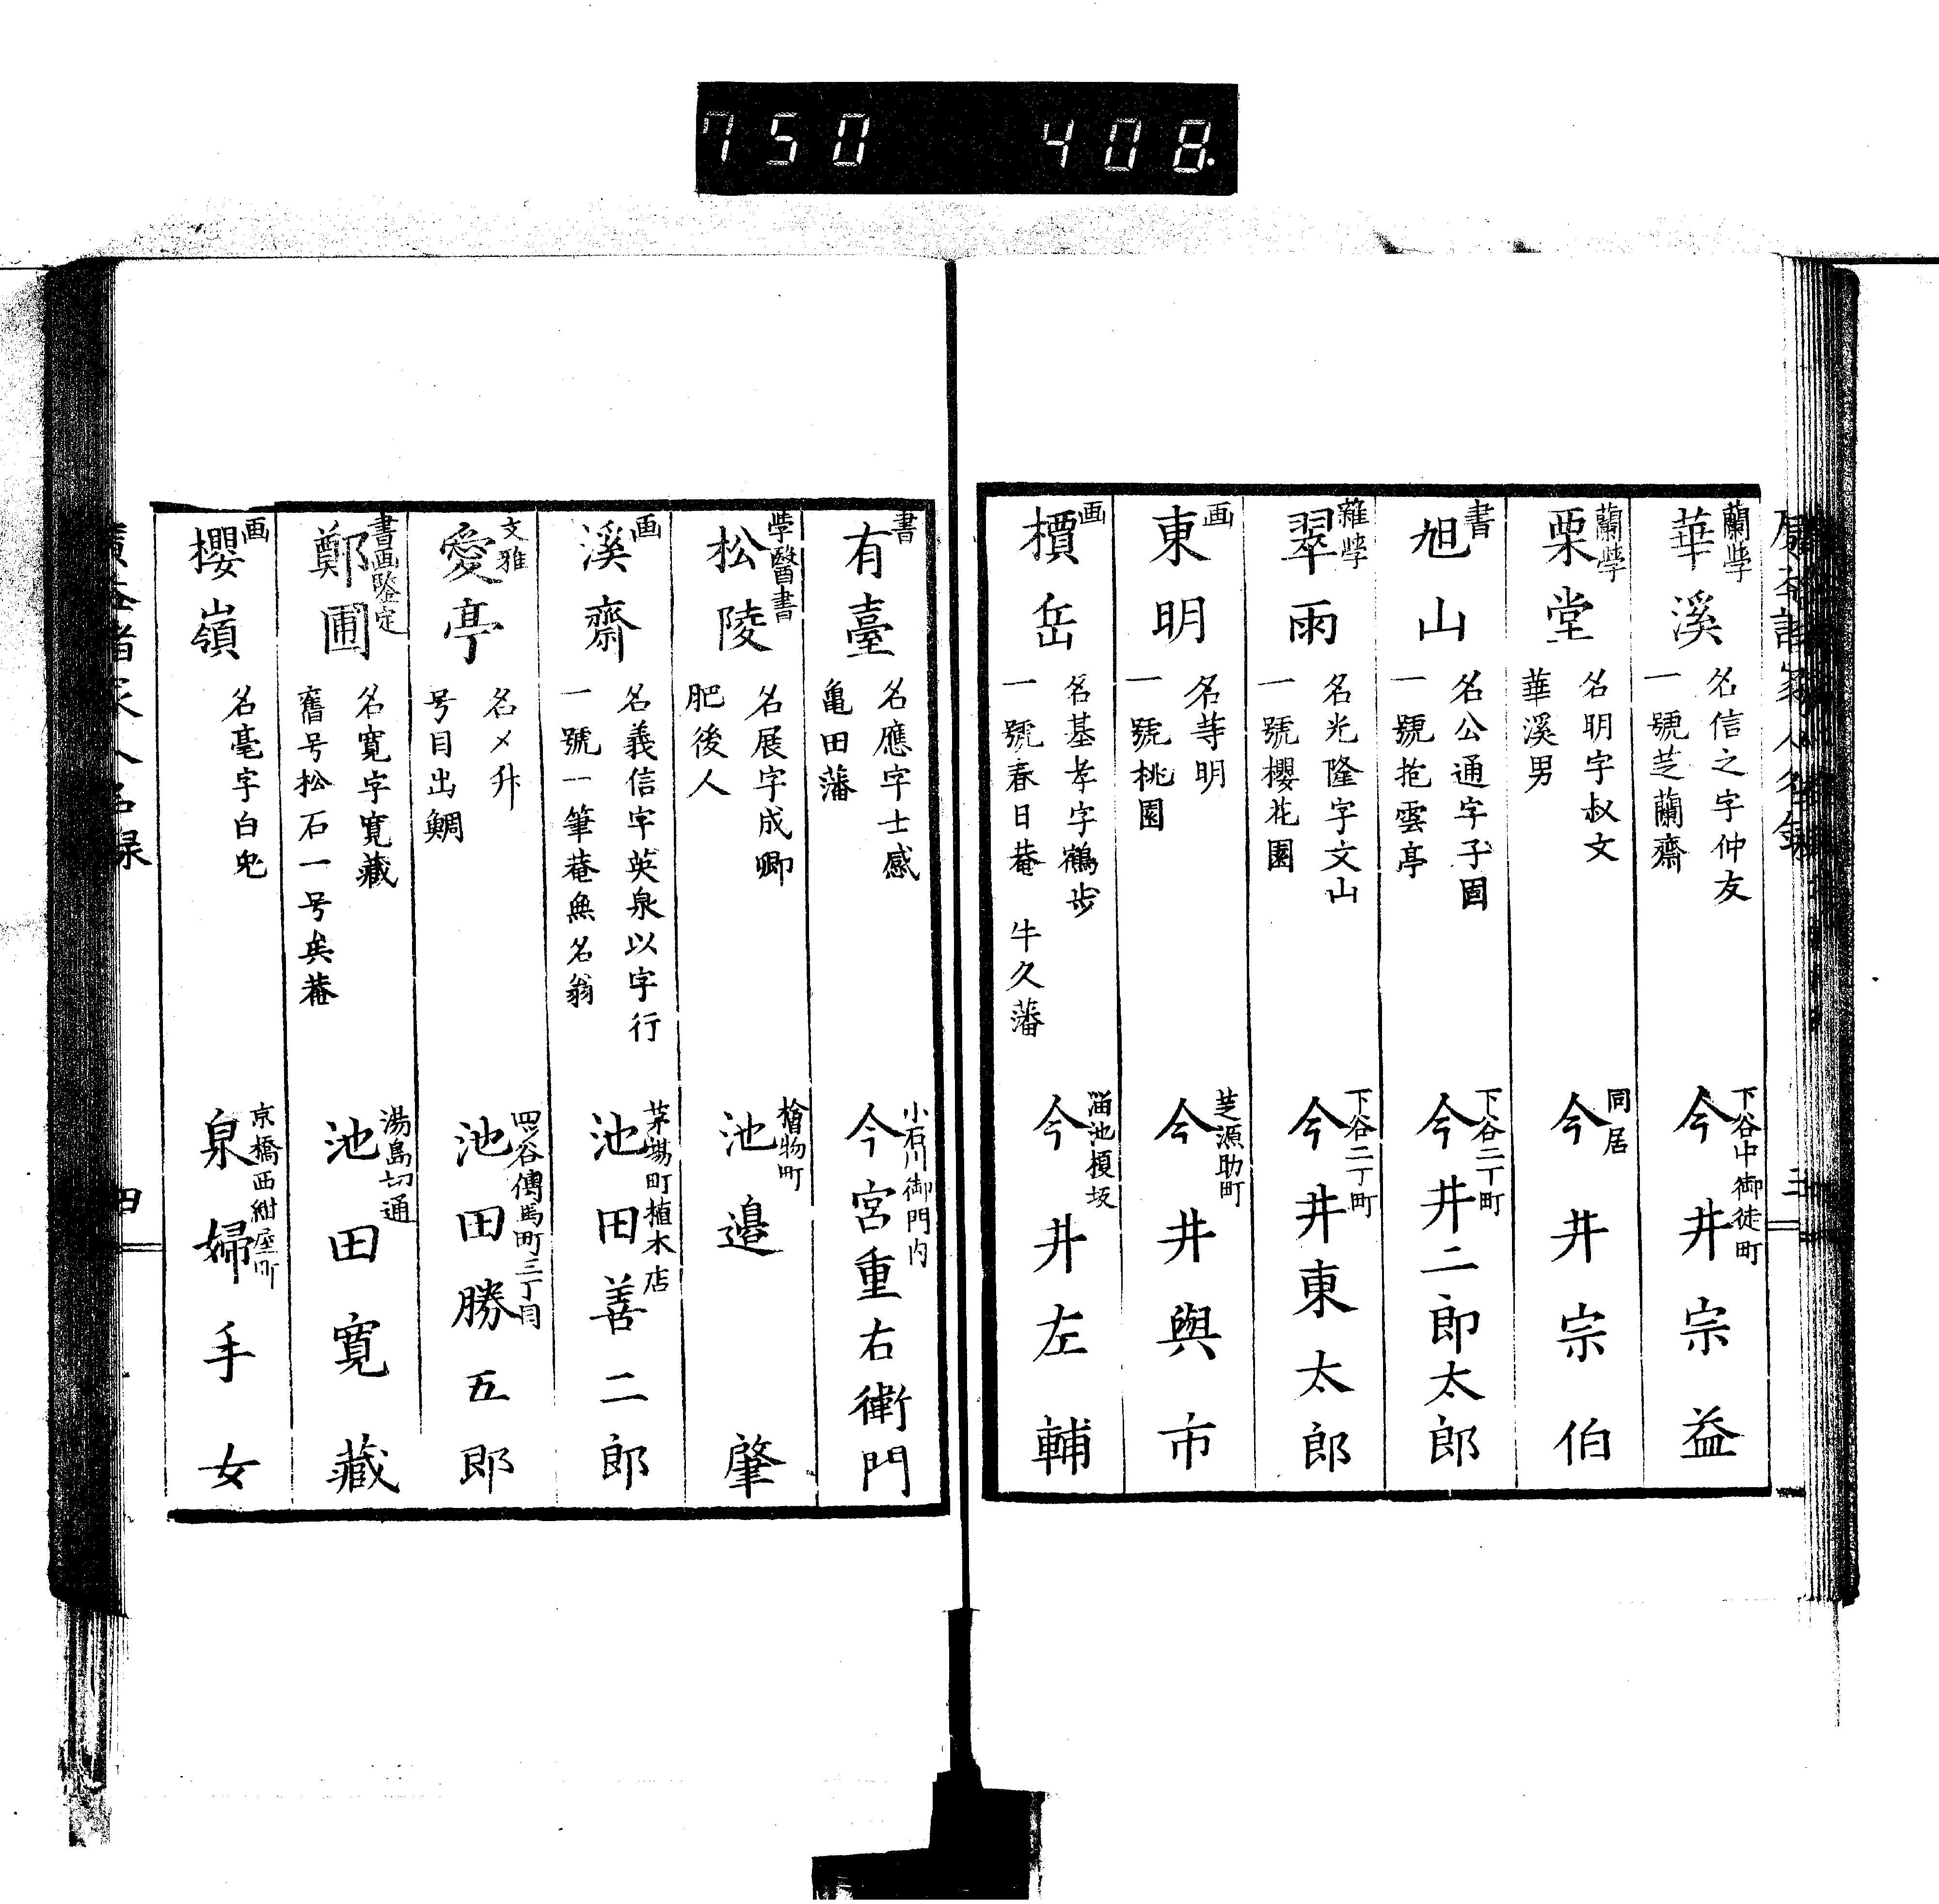 750 408.
蘭学
華溪
名信之字仲友
一號芝蘭齋
下谷中御徒町
今井宗益
蘭学
栗堂
名明字叔文
華溪男
同居
今井宗伯
書
旭山
名公通字子固
一號抱雲亭
下谷二丁町
今井二郎太郎
雜学
翠雨
名光隆字文山
一號櫻花園
下谷二丁町
今井東太郎
画
東明
名等明
一號桃園
芝源助町
今井與市
画
檟岳
名基孝字鶴歩
一號春日菴 牛久藩
溜池榎坂
今井左輔
書
有臺
名應字士感
亀田藩
小石川御門内
今宮重右衛門
学醫書
松陵
名展字成卿
肥後人
檜物町
池邉肇
画
溪齋
名義信字英泉以字行
一號一筆菴無名翁
茅場町植木店
池田善二郎
文雅
愛亭
名〆升
号目出鯛
四ツ谷傳馬町三丁目
池田勝五郎
書画鑒定
鄭圃
名寛字寛藏
舊号松石一号矣菴
湯島切通
池田寛藏
画
櫻嶺
名毫字白兎
京橋西紺屋町
泉婦手女
四